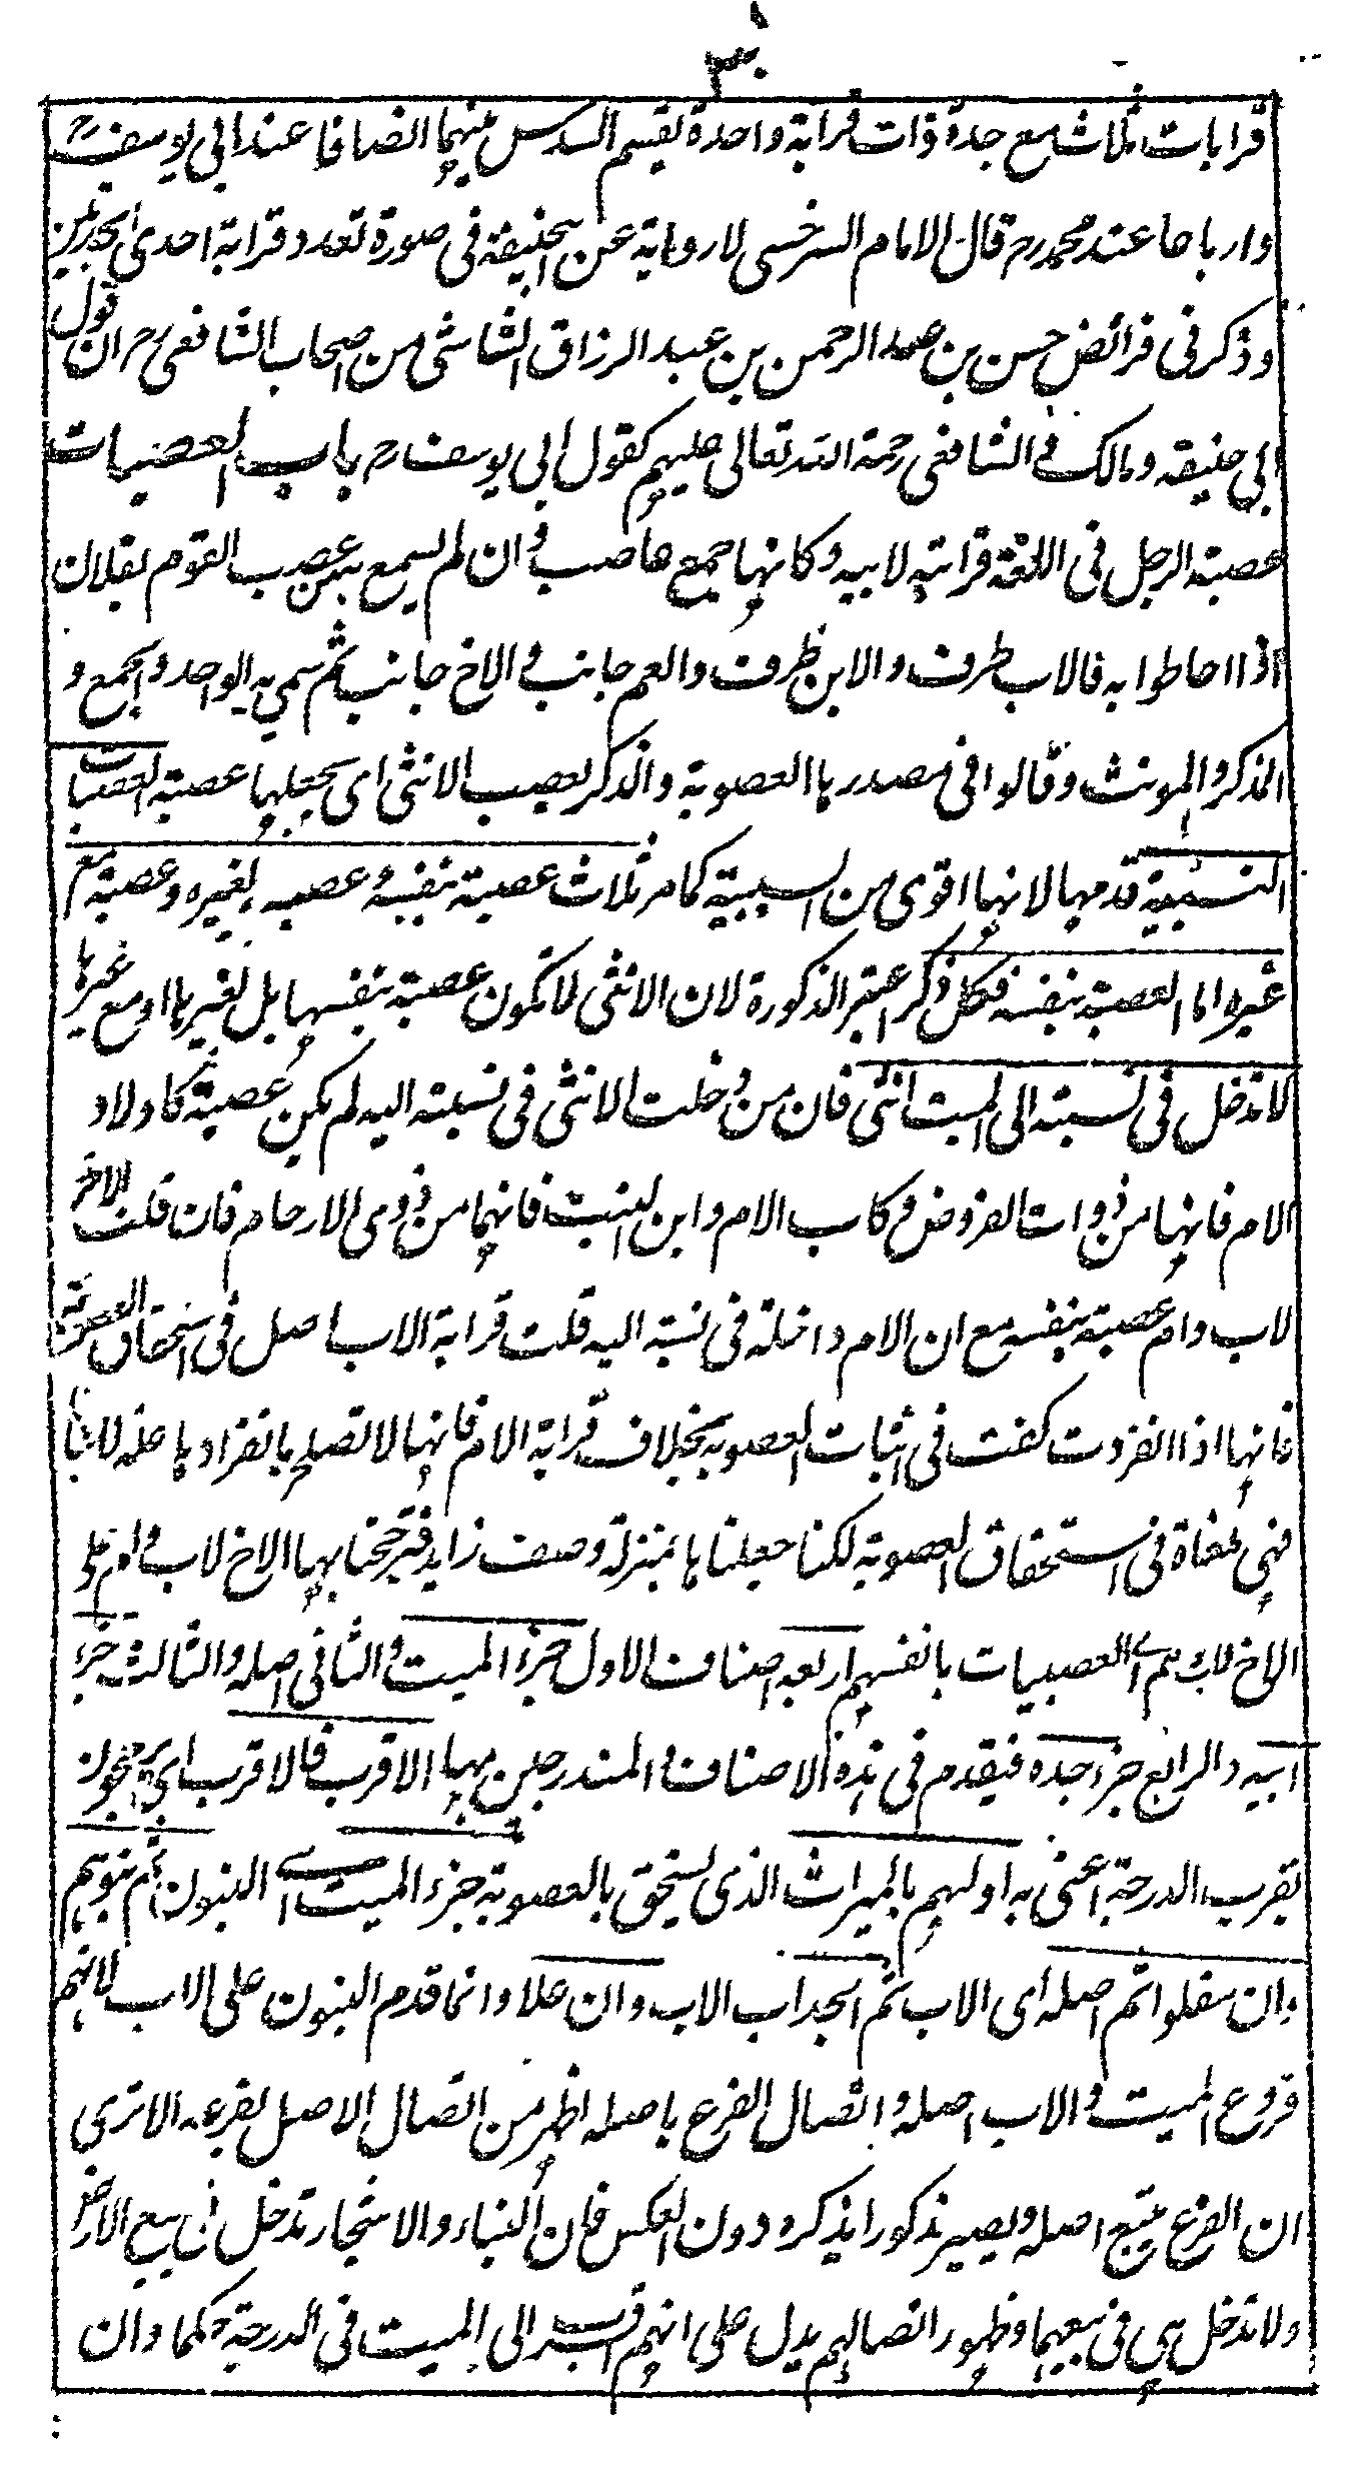 ٣٠
قرابات ثلاث مع جدة ذات قرابة واحدة يقسم السدس بينهما انصافا عند ابي يوسف رح
وارباعا عند محمد رح قال الامام السرخسي لا رواية عن ابيحنيفة في صورة تعدد قرابة احدى الجدتين
وذكر في فرائض حسن بن عبد الرحمن بن عبد الرزاق الشاشي من اصحاب الشافعي رح ان قول
ابي حنيفه ومالك و الشافعي رحمة الله تعالى عليهم كقول ابي يوسف رح باب العصبات
عصبة الرجل في اللغة قرابته لابيه وكانها جمع عاصب وان لم يسمع به من عصب القوم بفلان
اذا احاطوا به فالاب طرف والابن طرف والعم جانب والاخ جانب ثم سمي به الواحد والجمع و
المذكر والمونث وقالوا في مصدرها العصوبة والذكر يعصب الانثى اى يجعلها عصبة العصبات
النسبية قدمها لانها اقوى من السببية كما مر ثلاث عصبة بنفسه وعصبه بغيره وعصبة مع
غيره اما العصبة بنفسه فكل ذكر اعتبر الذكورة لان الانثى لا تكون عصبة بنفسها بل بغيرها او مع غيرها
لا تدخل في نسبته الى الميت انثى فان من دخلت الانثى في نسبته اليه لم يكن عصبة كاولاد
الام فانها من ذوات الفروض وكاب الام وابن البنت فانهما من ذوي الارحام فان قلت الاخ
لاب وام عصبة بنفسه مع ان الام داخلة في نسبة اليه قلت قرابة الاب اصل في استحقاق العصوبة
فانها اذا انفردت كفت في اثبات العصوبة بخلاف قرابة الام فانها لا تصلح بانفرادها علة لاثباتها
فهي ملغاة في استحقاق العصوبة لكنا جعلناها بمنزلة وصف زايد فترجحنا بها الاخ لاب وام على
الاخ لاب هم اى العصبات بانفسهم اربعه اصناف الاول جزء الميت والثاني اصله والثالث جزء
ابيه والرابع جزء جده فيقدم في هذه الاصناف والمندرجين فيها الاقرب فالاقرب اى يرجحون
بقرب الدرجة اعنى به اولهم بالميراث الذى يستحق بالعصوبة جزء الميت اى البنون ثم بنوهم
وان سفلوا ثم اصله اى الاب ثم الجد اب الاب وان علا وانما قدم البنون على الاب لانهم
فروع الميت والاب اصله و اتصال الفرع باصله اظهر من اتصال الاصل بفرعه الا ترى
ان الفرع يتبع اصله ويصير مذكورا بذكره دون العكس فان البناء والاشجار تدخل في بيع الارض
ولا تدخل هي في بيعهما وظهور اتصالهم يدل على انهم اقرب الى الميت في الدرجة حكما وان